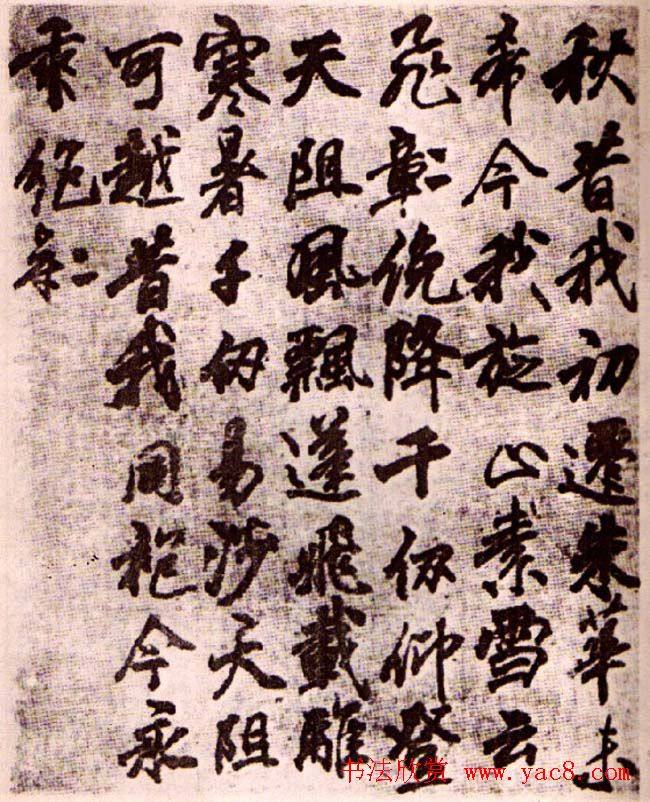 秋昔我初遷朱華未
希今我旋止素雪云
飛俛降千仞仰登
天阻風飄蓬飛載離
寒暑千仞易涉天阻
可越昔我同袍今永
乖絕
书法欣赏 www.yac8.com